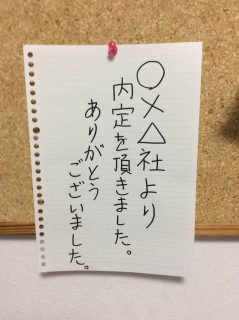 ○×△社より
内定を頂きました。
ありがとう
ございました。